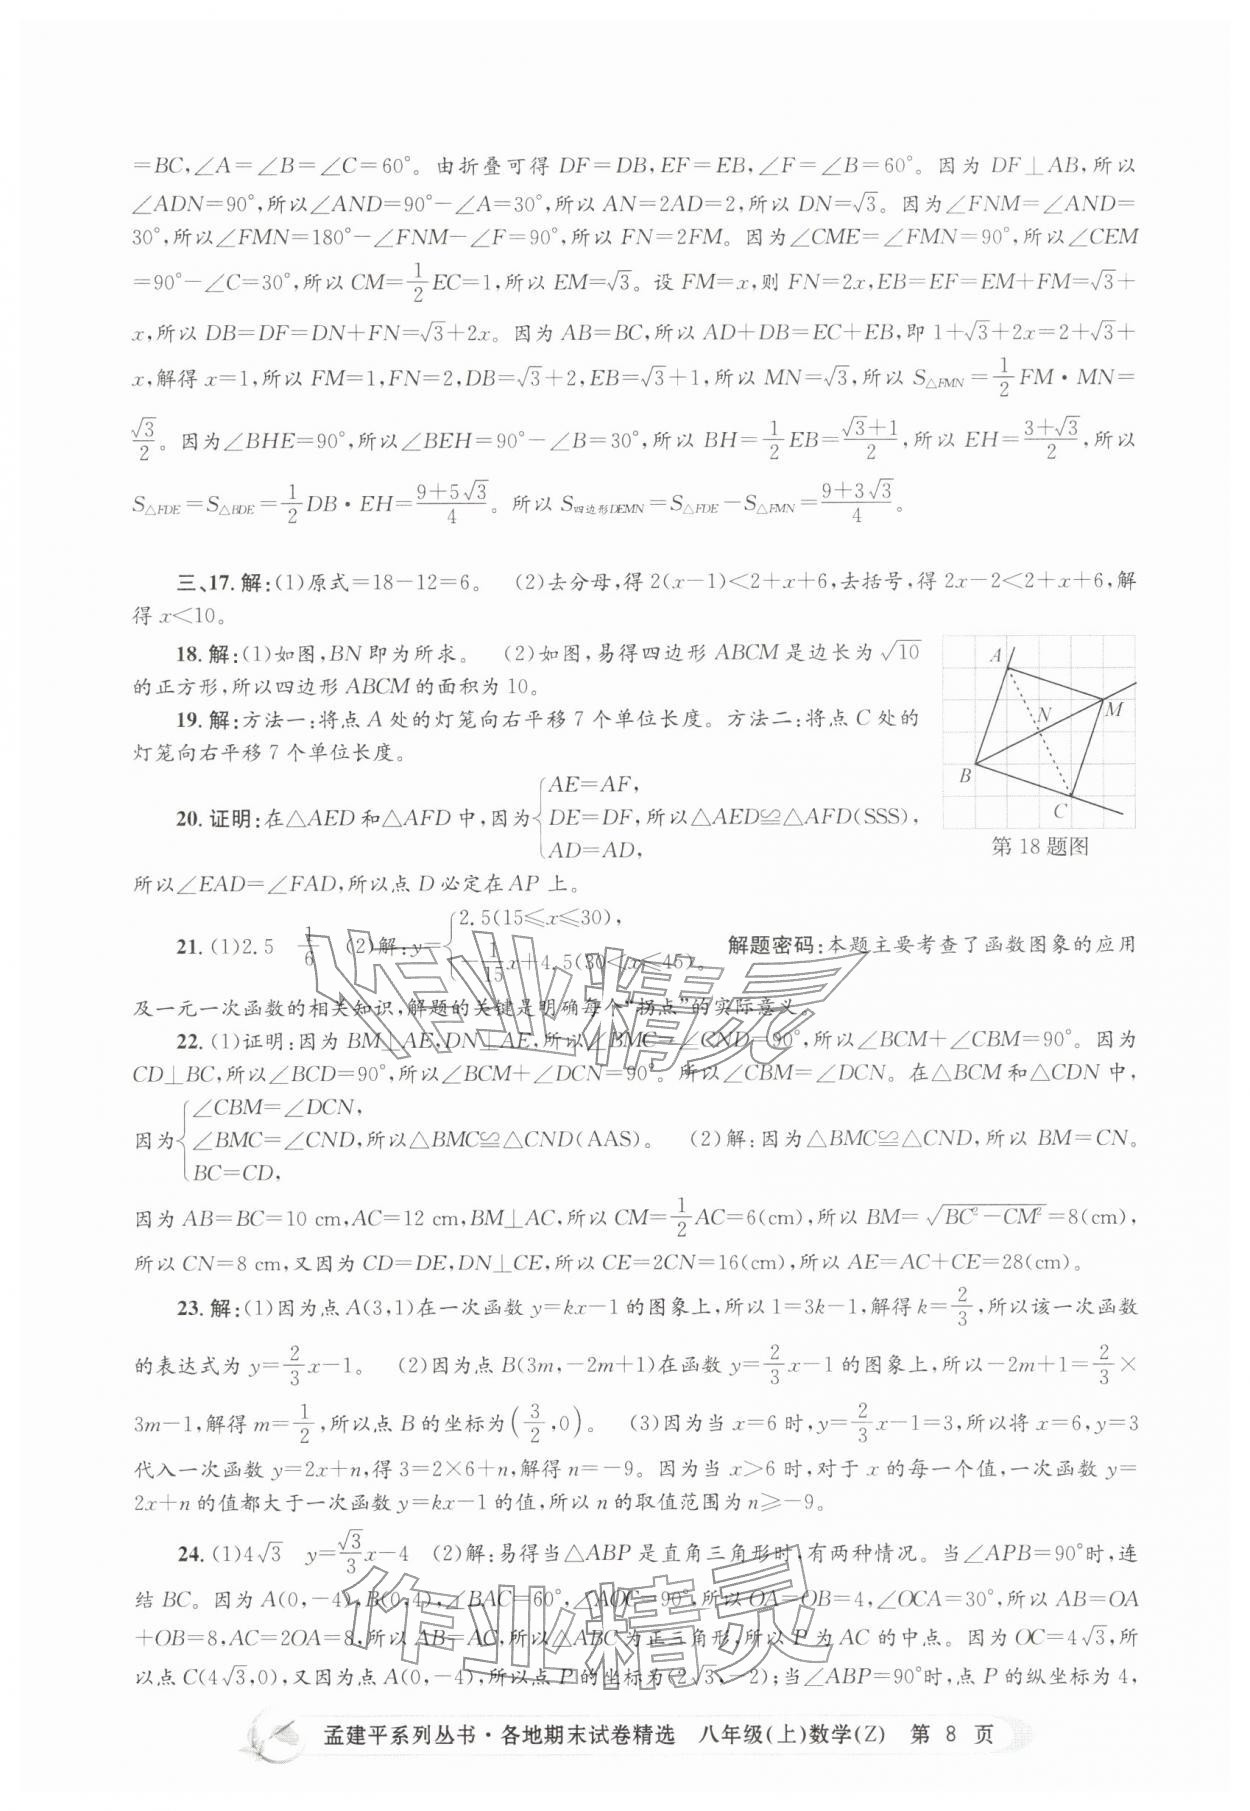 =BC,∠A=∠B=∠C=60°。由折叠可得 DF=DB,EF=EB,∠F=∠B=60°。因为 DF⊥AB,所以
∠ADN=90°,所以∠AND=90°-∠A=30°,所以 AN=2AD=2,所以 DN=√3。因为∠FNM=∠AND=
30°,所以∠FMN=180°-∠FNM-∠F=90°,所以 FN=2FM。因为∠CME=∠FMN=90°,所以∠CEM
=90°-∠C=30°,所以 CM=1/2 EC=1,所以 EM=√3。设 FM=x,则 FN=2x,EB=EF=EM+FM=√3+
x,所以 DB=DF=DN+FN=√3+2x。因为 AB=BC,所以 AD+DB=EC+EB,即 1+√3+2x=2+√3+
x,解得 x=1,所以 FM=1,FN=2,DB=√3+2,EB=√3+1,所以 MN=√3,所以 S△FMN=1/2 FM·MN=
√3/2。因为∠BHE=90°,所以∠BEH=90°-∠B=30°,所以 BH=1/2 EB=(√3+1)/2,所以 EH=(3+√3)/2,所以
S△FDE=S△BDE=1/2 DB·EH=(9+5√3)/4。所以 S四边形DEMN=S△FDE-S△FMN=(9+3√3)/4。
三、17.解:(1)原式=18-12=6。 (2)去分母,得 2(x-1)<2+x+6,去括号,得 2x-2<2+x+6,解
得 x<10。
18.解:(1)如图,BN 即为所求。 (2)如图,易得四边形 ABCM 是边长为 √10
的正方形,所以四边形 ABCM 的面积为 10。
19.解:方法一:将点 A 处的灯笼向右平移 7 个单位长度。方法二:将点 C 处的
灯笼向右平移 7 个单位长度。
A
M
N
B
C
第 18 题图
20.证明:在△AED 和△AFD 中,因为{AE=AF,
DE=DF,所以△AED≌△AFD(SSS),
AD=AD,
所以∠EAD=∠FAD,所以点 D 必定在 AP 上。
21.(1)2.5 1/6 (2)解:y={2.5(15≤x≤30),
-1/15 x+4.5(30<x≤45)。 解题密码:本题主要考查了函数图象的应用
及一元一次函数的相关知识,解题的关键是明确每个“拐点”的实际意义。
22.(1)证明:因为 BM⊥AE,DN⊥AE,所以∠BMC=∠CND=90°,所以∠BCM+∠CBM=90°。因为
CD⊥BC,所以∠BCD=90°,所以∠BCM+∠DCN=90°。所以∠CBM=∠DCN。在△BCM 和△CDN 中,
因为{∠CBM=∠DCN,
∠BMC=∠CND,所以△BMC≌△CND(AAS)。 (2)解:因为△BMC≌△CND,所以 BM=CN。
BC=CD,
因为 AB=BC=10 cm,AC=12 cm,BM⊥AC,所以 CM=1/2 AC=6(cm),所以 BM=√(BC²-CM²)=8(cm),
所以 CN=8 cm,又因为 CD=DE,DN⊥CE,所以 CE=2CN=16(cm),所以 AE=AC+CE=28(cm)。
23.解:(1)因为点 A(3,1)在一次函数 y=kx-1 的图象上,所以 1=3k-1,解得 k=2/3,所以该一次函数
的表达式为 y=2/3 x-1。 (2)因为点 B(3m,-2m+1)在函数 y=2/3 x-1 的图象上,所以-2m+1=2/3×
3m-1,解得 m=1/2,所以点 B 的坐标为(3/2,0)。 (3)因为当 x=6 时,y=2/3 x-1=3,所以将 x=6,y=3
代入一次函数 y=2x+n,得 3=2×6+n,解得 n=-9。因为当 x>6 时,对于 x 的每一个值,一次函数 y=
2x+n 的值都大于一次函数 y=kx-1 的值,所以 n 的取值范围为 n≥-9。
24.(1)4√3 y=√3/3 x-4 (2)解:易得当△ABP 是直角三角形时,有两种情况。当∠APB=90°时,连
结 BC。因为 A(0,-4),B(0,4),∠BAC=60°,∠AOC=90°,所以 OA=OB=4,∠OCA=30°,所以 AB=OA
+OB=8,AC=2OA=8,所以 AB=AC,所以△ABC 为正三角形,所以 P 为 AC 的中点。因为 OC=4√3,所
以点 C(4√3,0),又因为点 A(0,-4),所以点 P 的坐标为(2√3,-2);当∠ABP=90°时,点 P 的纵坐标为 4,
作业精灵
作业精灵
孟建平系列丛书·各地期末试卷精选 八年级(上)数学(Z) 第 8 页